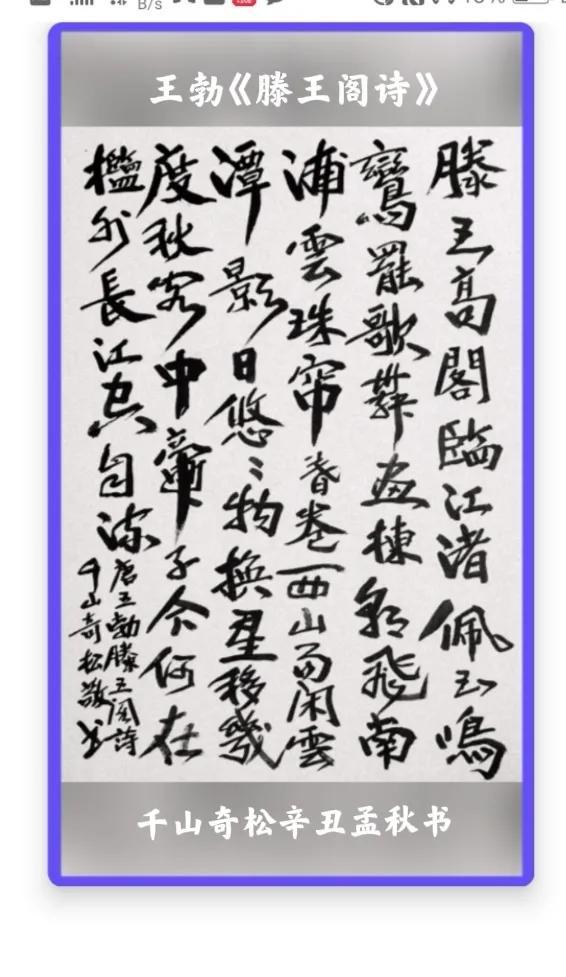 B/s
王勃《滕王阁诗》
滕王高閣臨江渚佩玉鳴
鸞罷歌舞画棟朝飛南
浦雲珠帘暮卷西山雨闲雲
潭影日悠々物换星移幾
度秋阁中帝子今何在
檻外長江空自流
唐王勃滕王阁詩
千山奇松敬书
千山奇松辛丑孟秋书